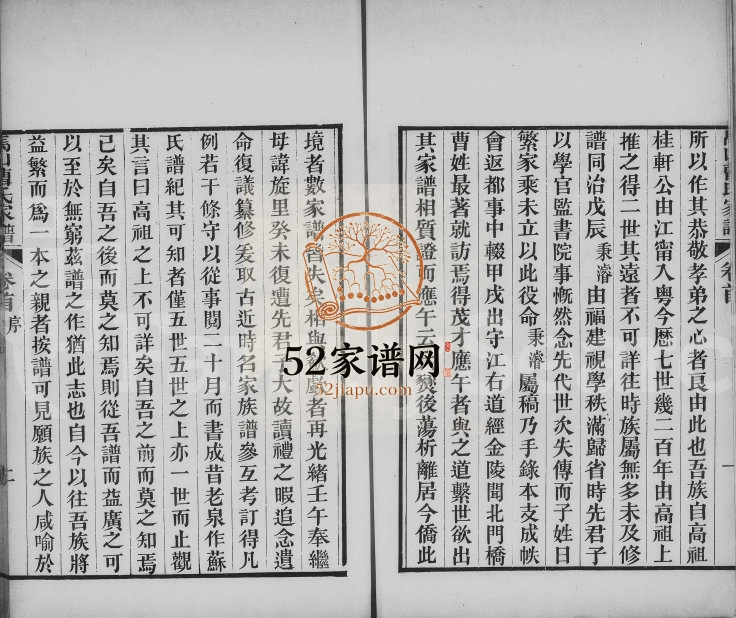 所以作其恭敬孝弟之心者艮由此也吾族自高祖
桂軒公由江甯入粤今歷七世幾二百年由高祖上
推之得二世其遠者不可詳往時族屬無多未及修
譜同治戊辰秉濬由福建視學秩滿歸省時先君子
以學官監書院事慨然念先代世次失傳而子姓日
繁家乘未立以此役命秉濬屬稿乃手錄本支成帙
會返都事中輟甲戌出守江右道經金陵聞北門橋
曹姓最著就訪焉得茂才應午者與之道繫世欲出
其家譜相質證而應午云 變後蕩析離居今僑此
境者數家譜皆失矣相與 者再光緒壬午奉繼
母諱旋里癸未復遭先君子大故讀禮之暇追念遺
命復議纂修爰取古近時名家族譜參互考訂得凡
例若干條守以從事閱二十月而書成昔老泉作蘇
氏譜紀其可知者僅五世五世之上亦一世而止觀
其言曰高祖之上不可詳矣自吾之前而莫之知焉
己矣自吾之後而莫之知焉則從吾譜而益廣之可
以至於無窮茲譜之作猶此志也自今以往吾族將
益繁而爲一本之親者按譜可見願族之人咸喻於
曹氏家譜 卷首 序
52家谱网
52jiapu.com